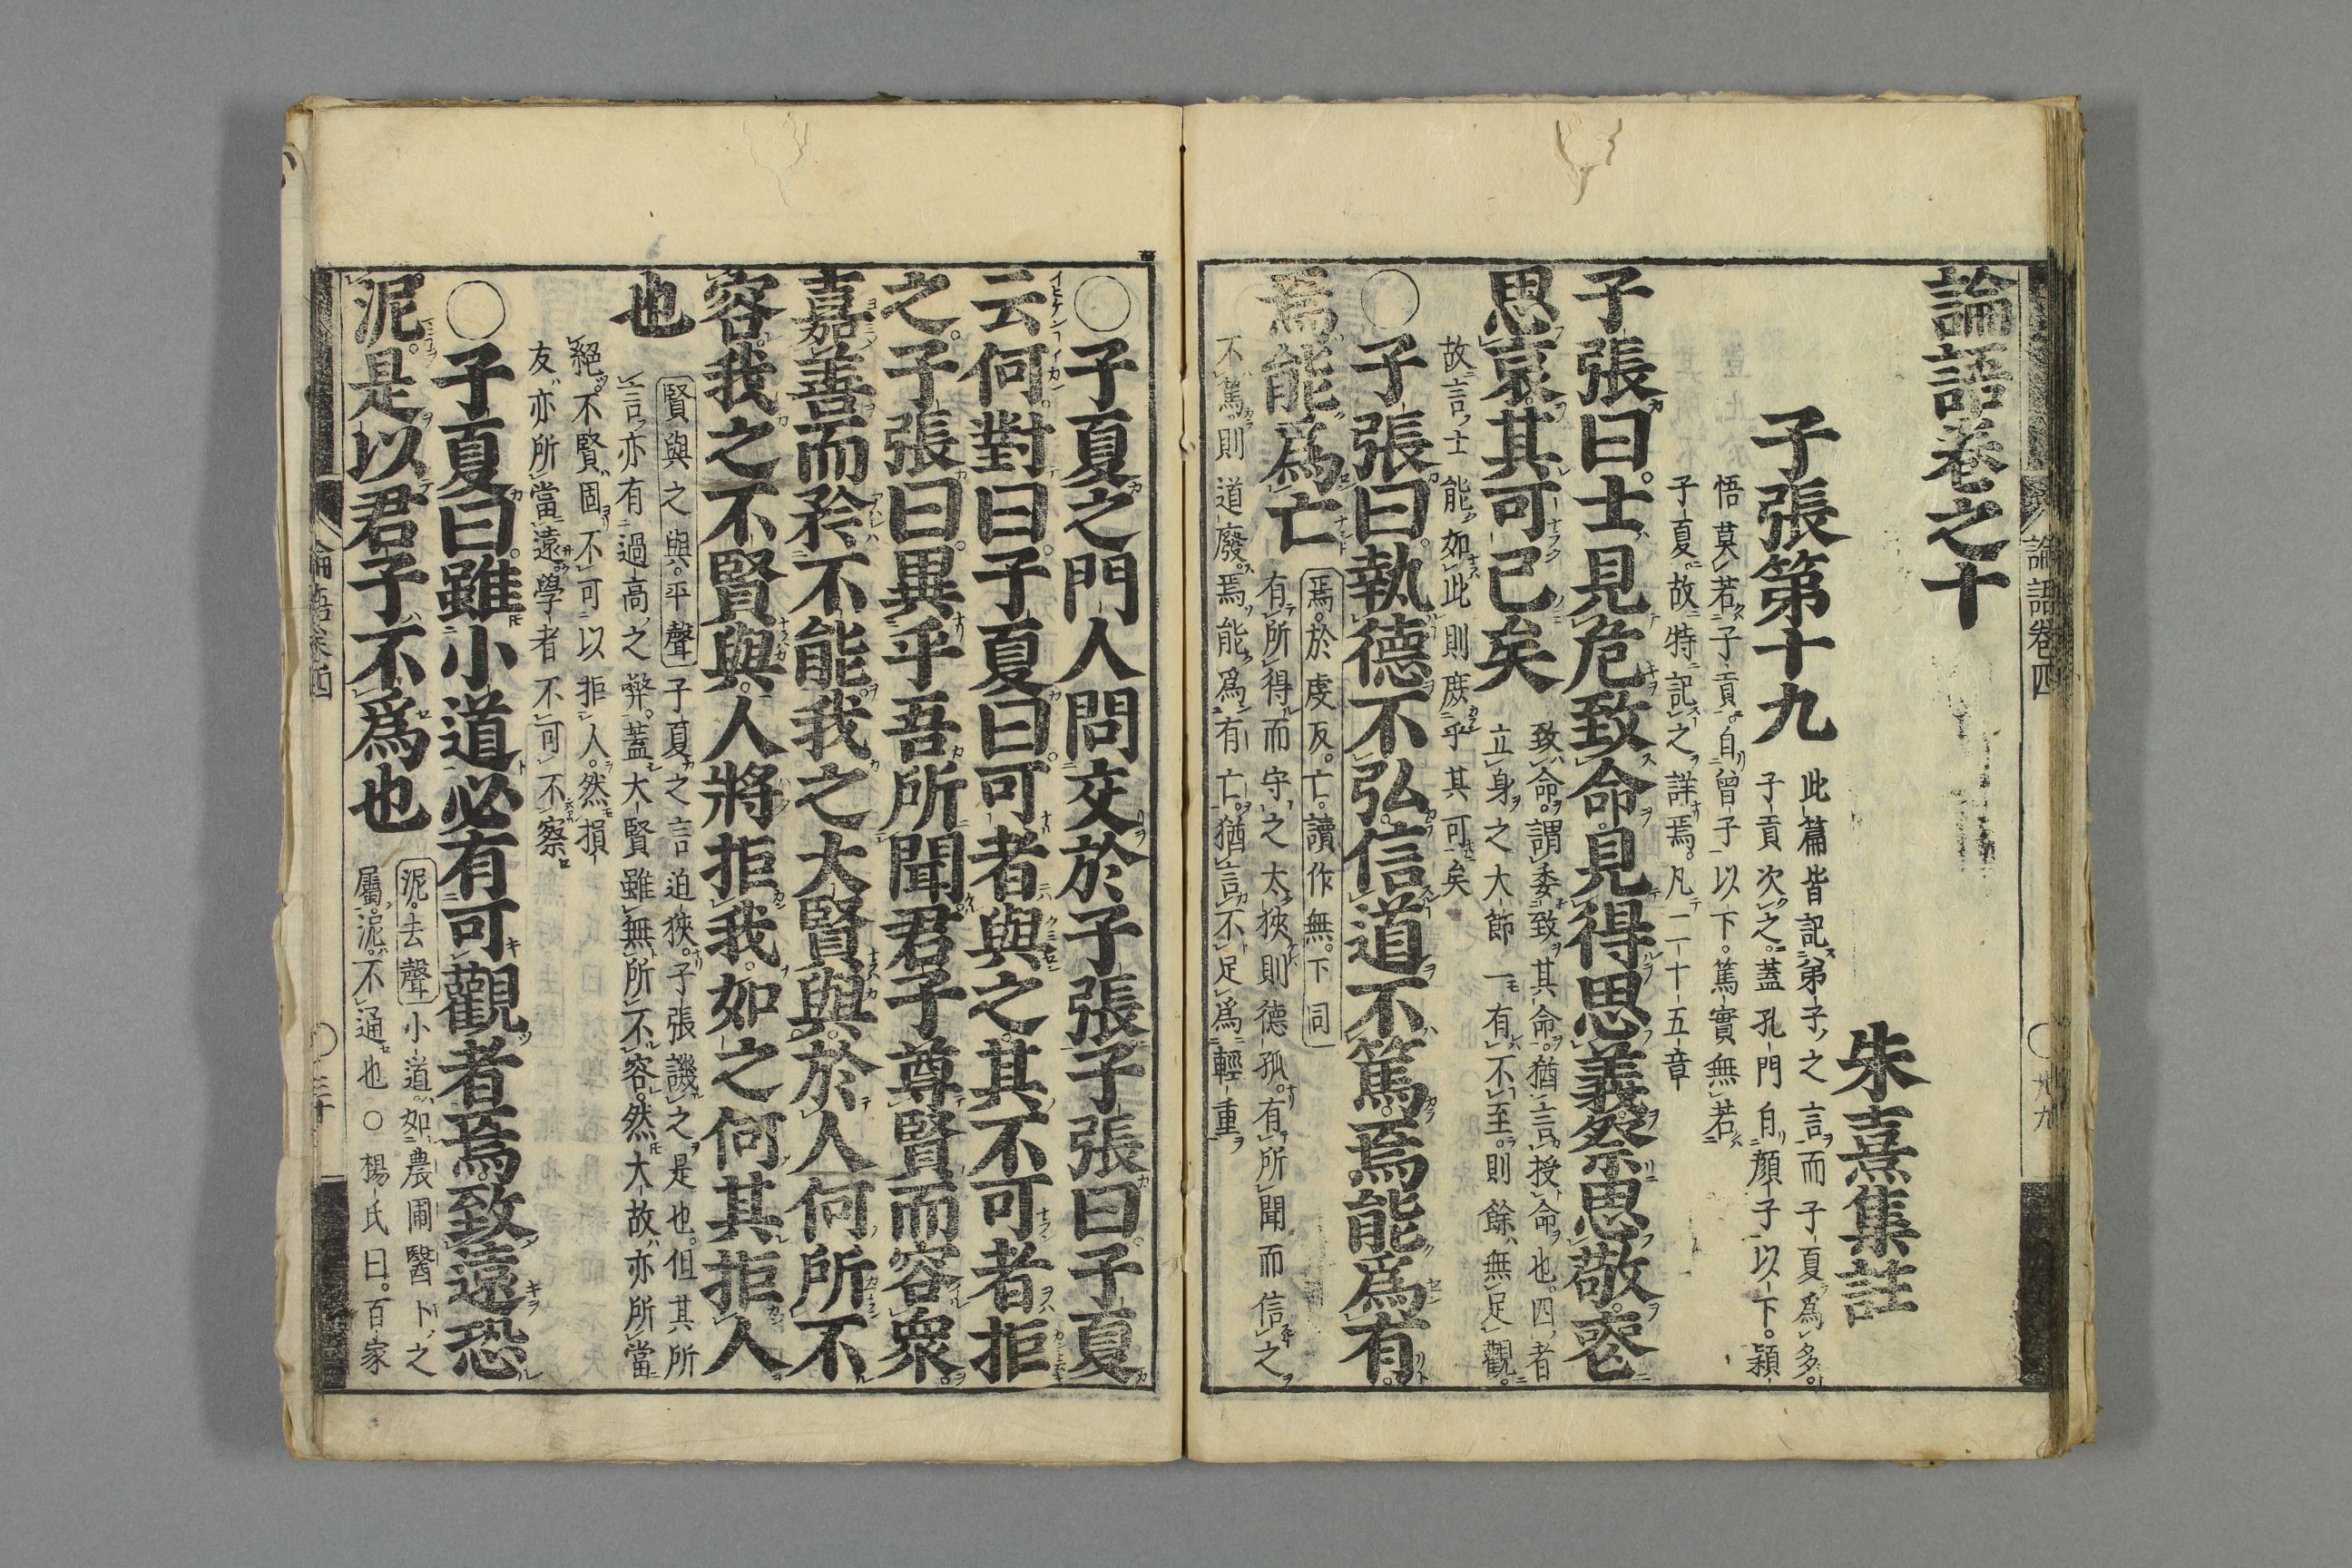 論語巻之十
朱熹集註
子張第十九
此篇皆記弟子之言而子夏爲多
子貢次之蓋孔門自顏子以下穎
悟莫若子貢自曾子以下篤實無若
子夏故特記之詳焉凡二十五章
子張曰士見危致命見得思義祭思敬喪
思哀其可已矣
致命謂委致其命猶言授命也四者
立身之大節一有不至則餘無足觀
故言士能如此則庶乎其可矣
○子張曰執德不弘信道不篤焉能爲有
焉能爲亡
焉於虔反亡讀作無下同
有所得而守之太狹則德孤有所聞而信之
不篤則道廢焉能爲有亡猶言不足爲輕重
論語卷四
○子夏之門人問交於子張子張曰子夏
云何對曰子夏曰可者與之其不可者拒
之子張曰異乎吾所聞君子尊賢而容衆
嘉善而矜不能我之大賢與於人何所不
容我之不賢與人將拒我如之何其拒人
也
賢與之與平聲子夏之言迫狹子張譏之是也但其所
言亦有過高之弊蓋大賢雖無所不容然大故亦所當
絕不賢固不可以拒人然損
友亦所當遠學者不可不察
○子夏曰雖小道必有可觀者焉致遠恐
泥是以君子不爲也
泥去聲小道如農圃醫卜之
屬泥不通也○楊氏曰百家
論語卷四
三十